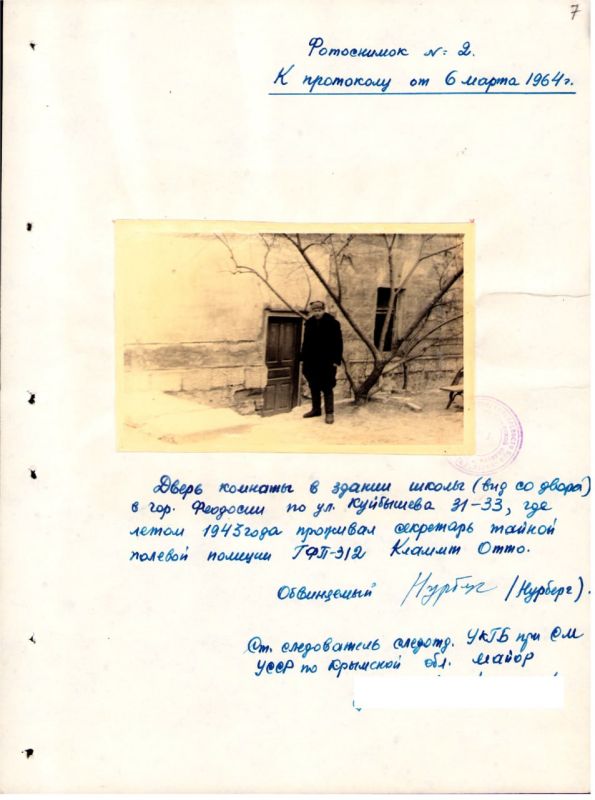 7
Фотоснимок N: 2.
К протоколу от 6 марта 1964 г.
Дверь комнаты в здании школы (вид со двора)
в гор. Феодосии по ул. Куйбышева 31-33, где
летом 1943 года проживал секретарь тайной
полевой полиции ГФП-312 Кламмт Отто.
Обвиняемый Нурберг /Нурберг).
Ст. следователь следотд. УКГБ при СМ
УССР по Крымской обл. майор